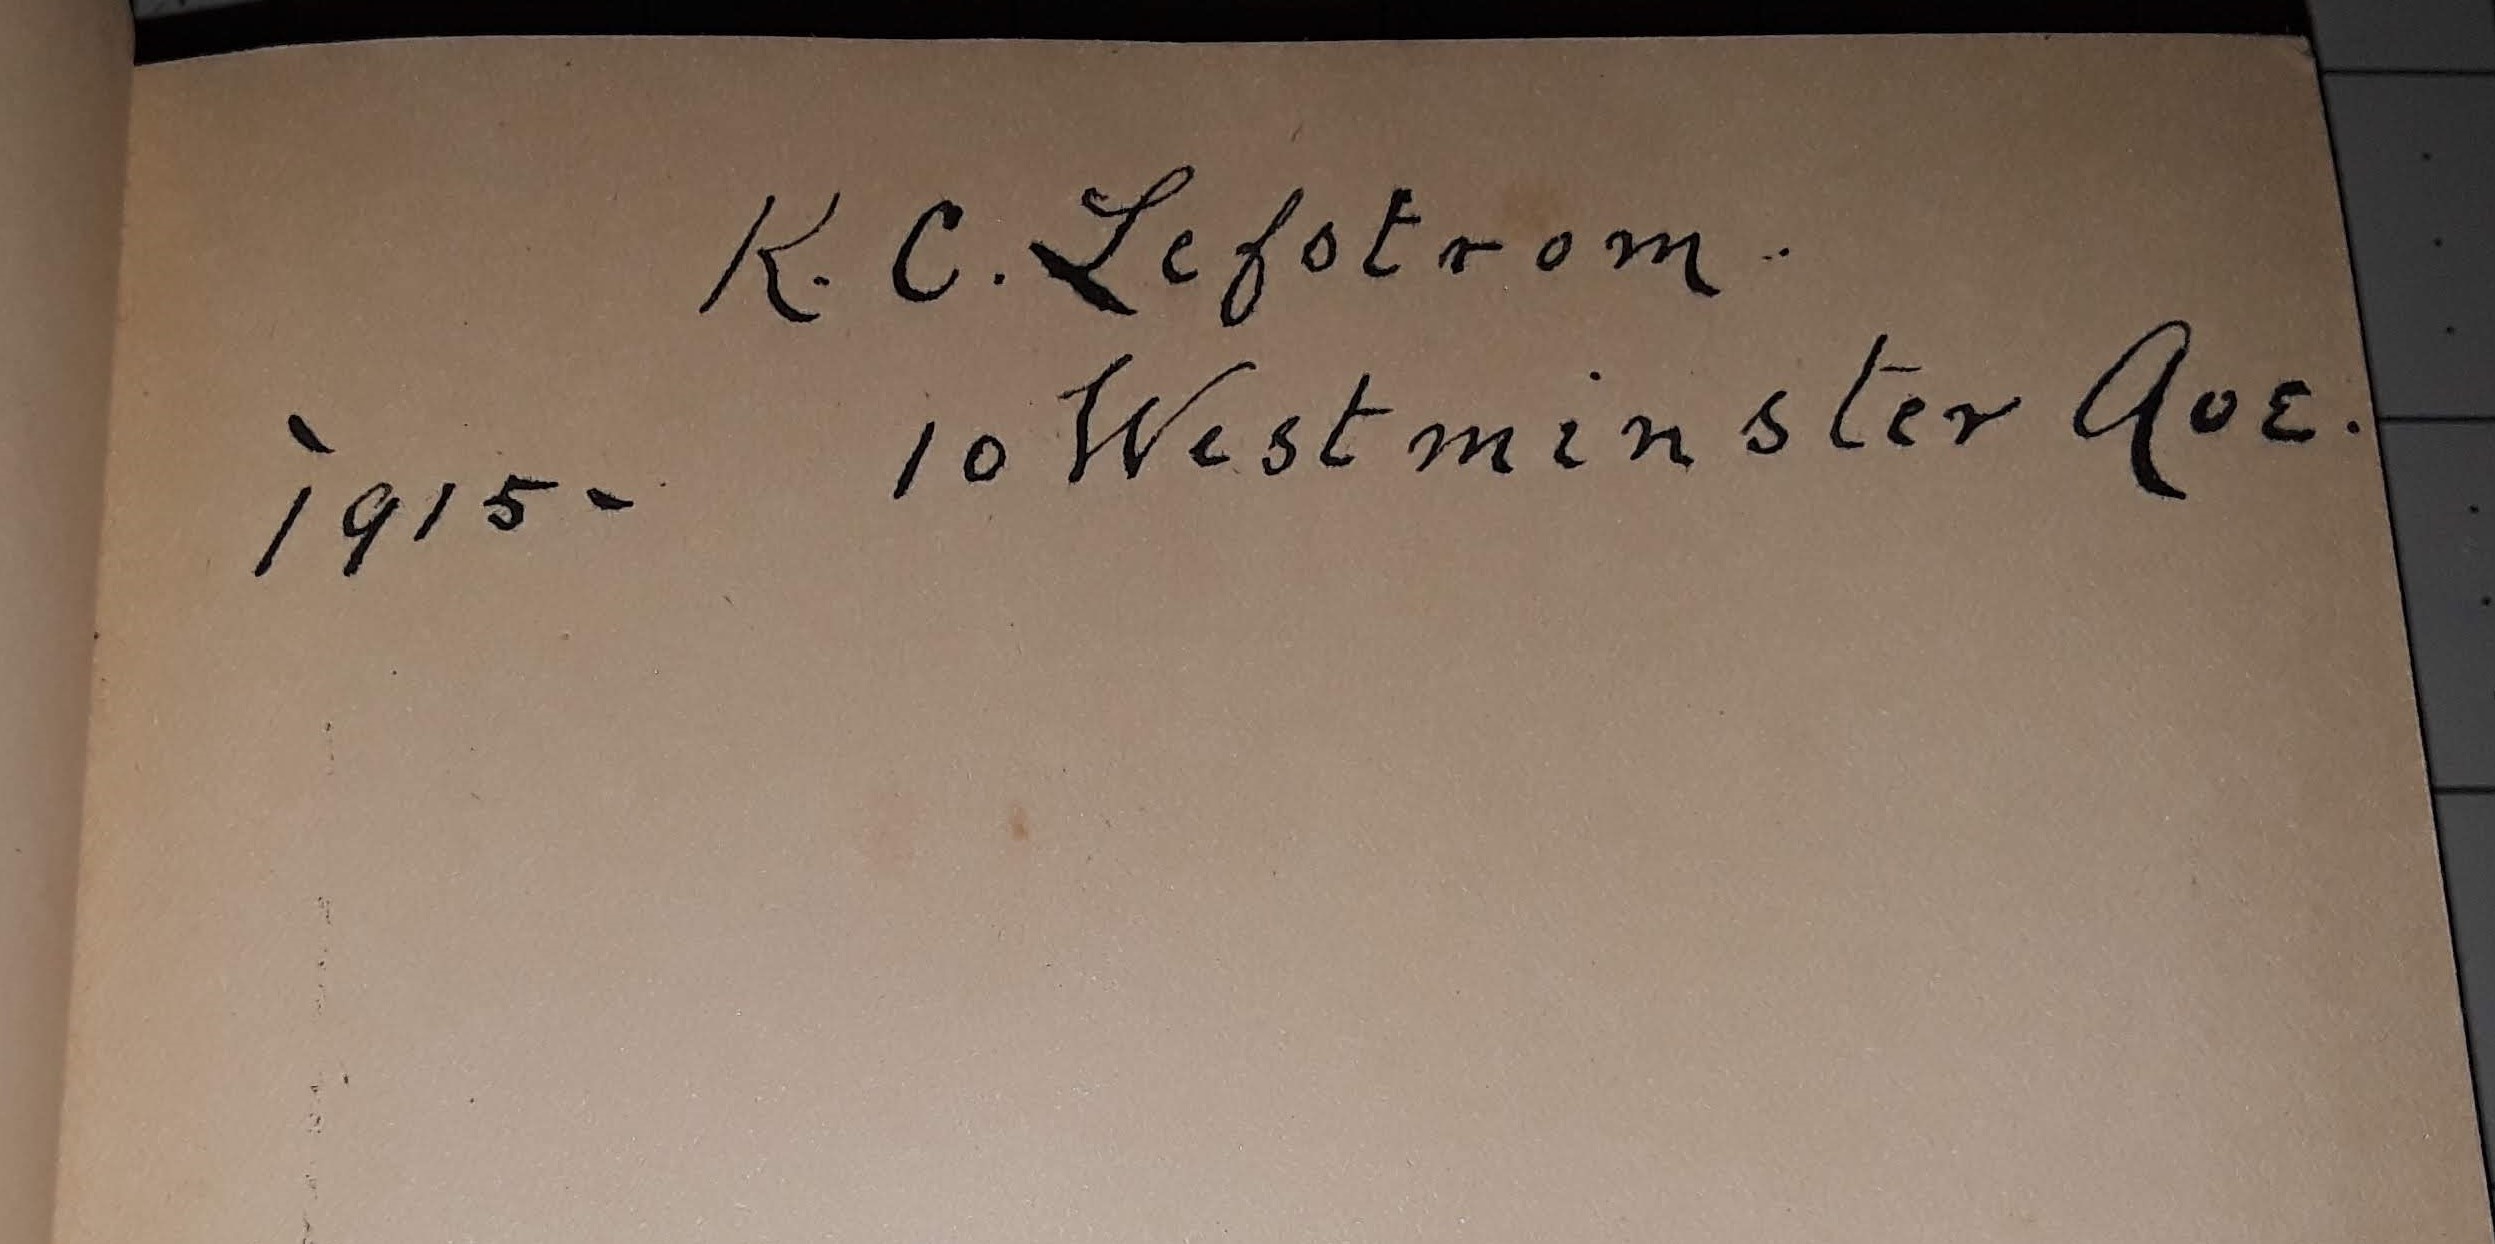 K. C. Lefstrom.
10 Westminster Ave.
1915-